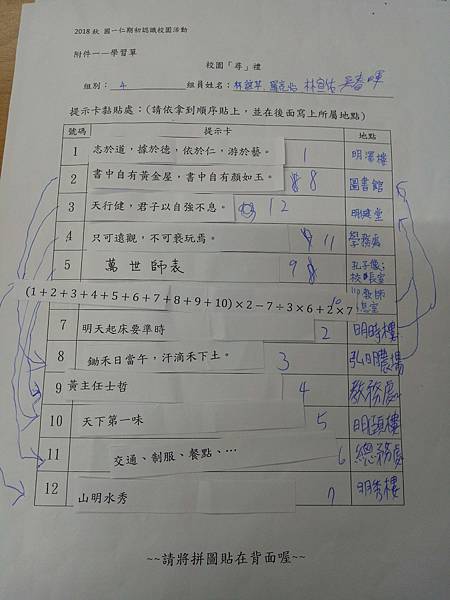 2018 秋 國一仁期初認識校園活動
附件一——學習單
校園「尋」禮
組別： 4 組員姓名： 林宜佑 吳春暉
提示卡黏貼處：(請依拿到順序貼上，並在後面寫上所屬地點)
號碼 提示卡 地點
1 志於道，據於德，依於仁，游於藝。 1 明澤樓
2 書中自有黃金屋，書中自有顏如玉。 8 圖書館
3 天行健，君子以自強不息。 12 明健堂
4 只可遠觀，不可褻玩焉。 11 學務處
5 萬世師表 9 孔子像；校長室
(1+2+3+4+5+6+7+8+9+10)×2−7÷3×6+2×7 10 110教師
7 明天起床要準時 2 明時樓
8 鋤禾日當午，汗滴禾下土。 3 弘明農場
9 黃主任士哲 4 教務處
10 天下第一味 5 明頭樓
11 交通、制服、餐點、… 6 總務處
12 山明水秀 7 明秀樓
~~請將拼圖貼在背面喔~~